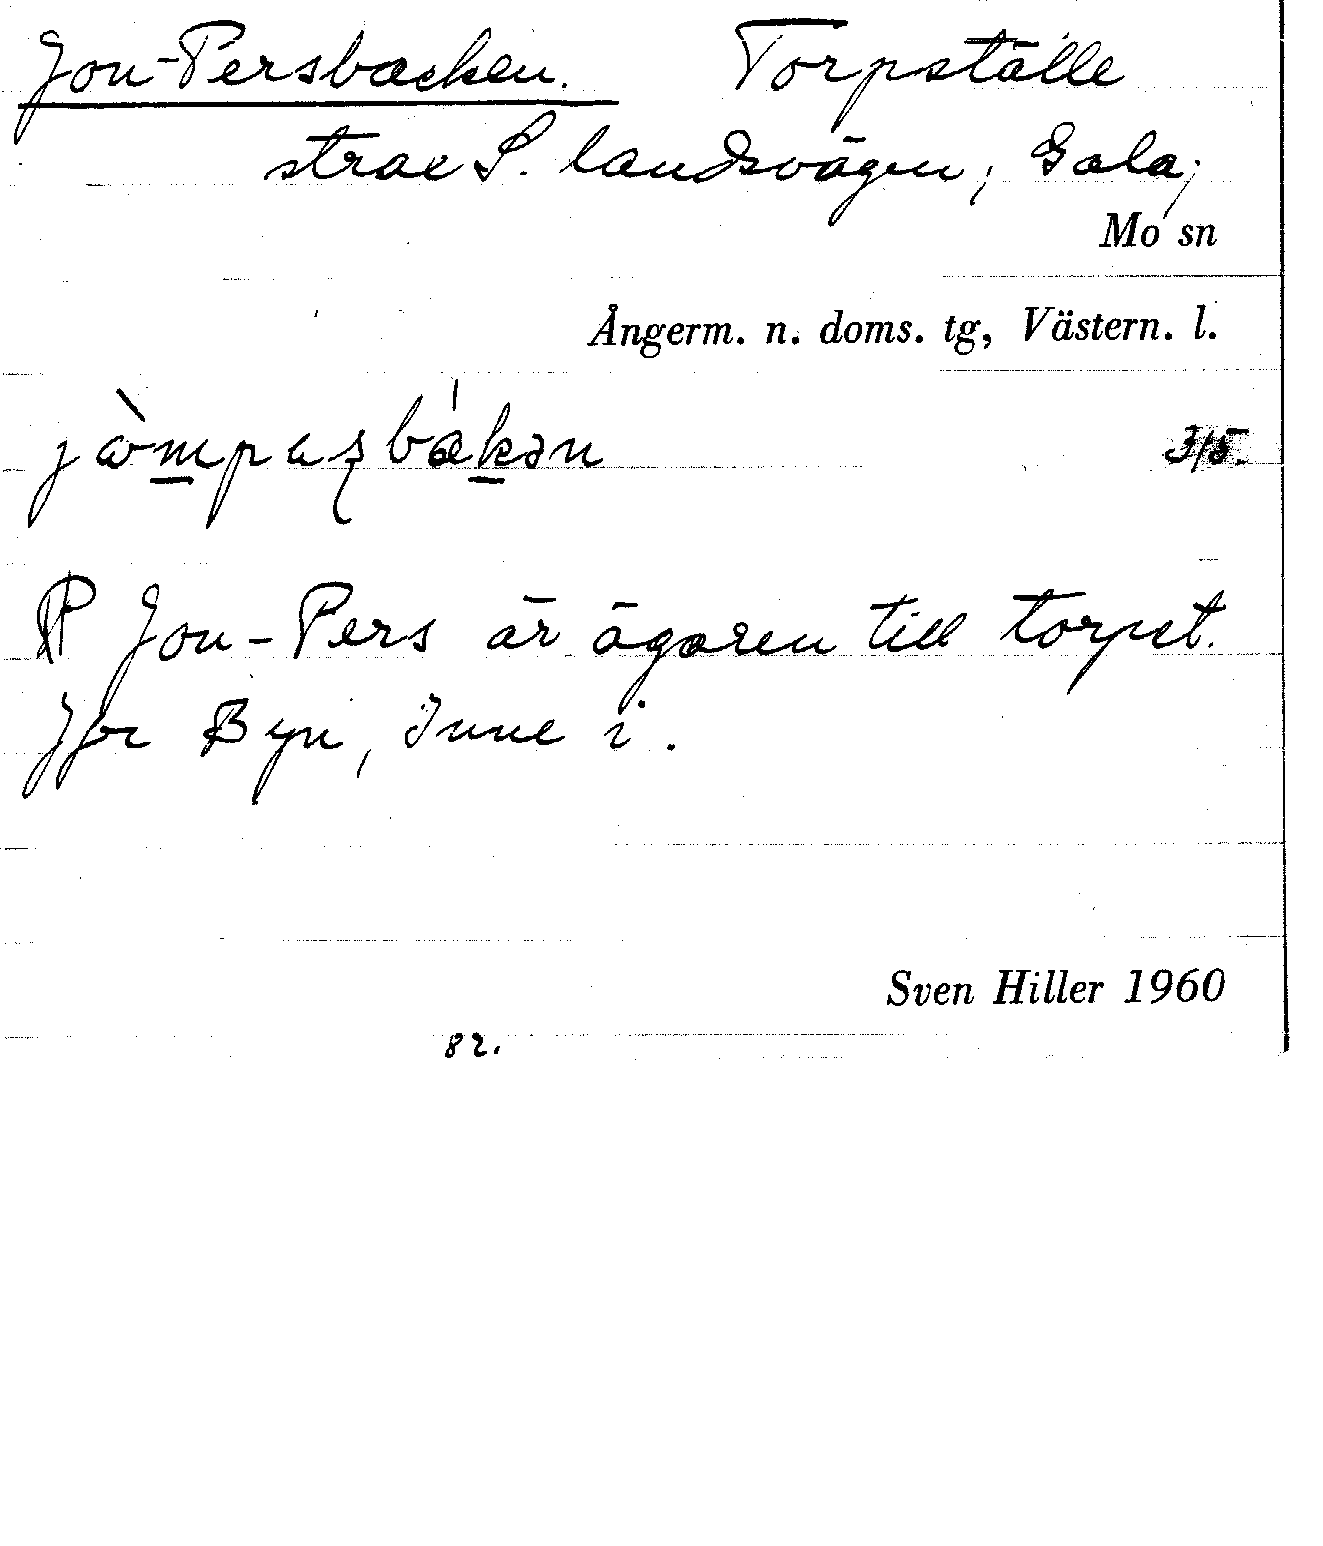 Jon-Persbacken. Torpställe
strax S. landsvägen, Gala,
Mo sn
Ångerm. n. doms. tg, Västern. l.
315.
Jon-Pers är ägaren till torpet.
Jfr Byn, Inne i.
Sven Hiller 1960
82.